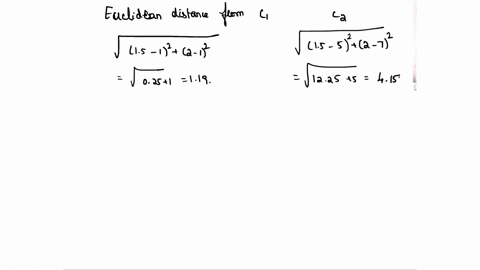 Euclidean distance from C1 C2
√(1.5-1)²+(2-1)² √(1.5-5)²+(2-7)²
= √0.25+1 = 1.19. = √12.25+5 = 4.15